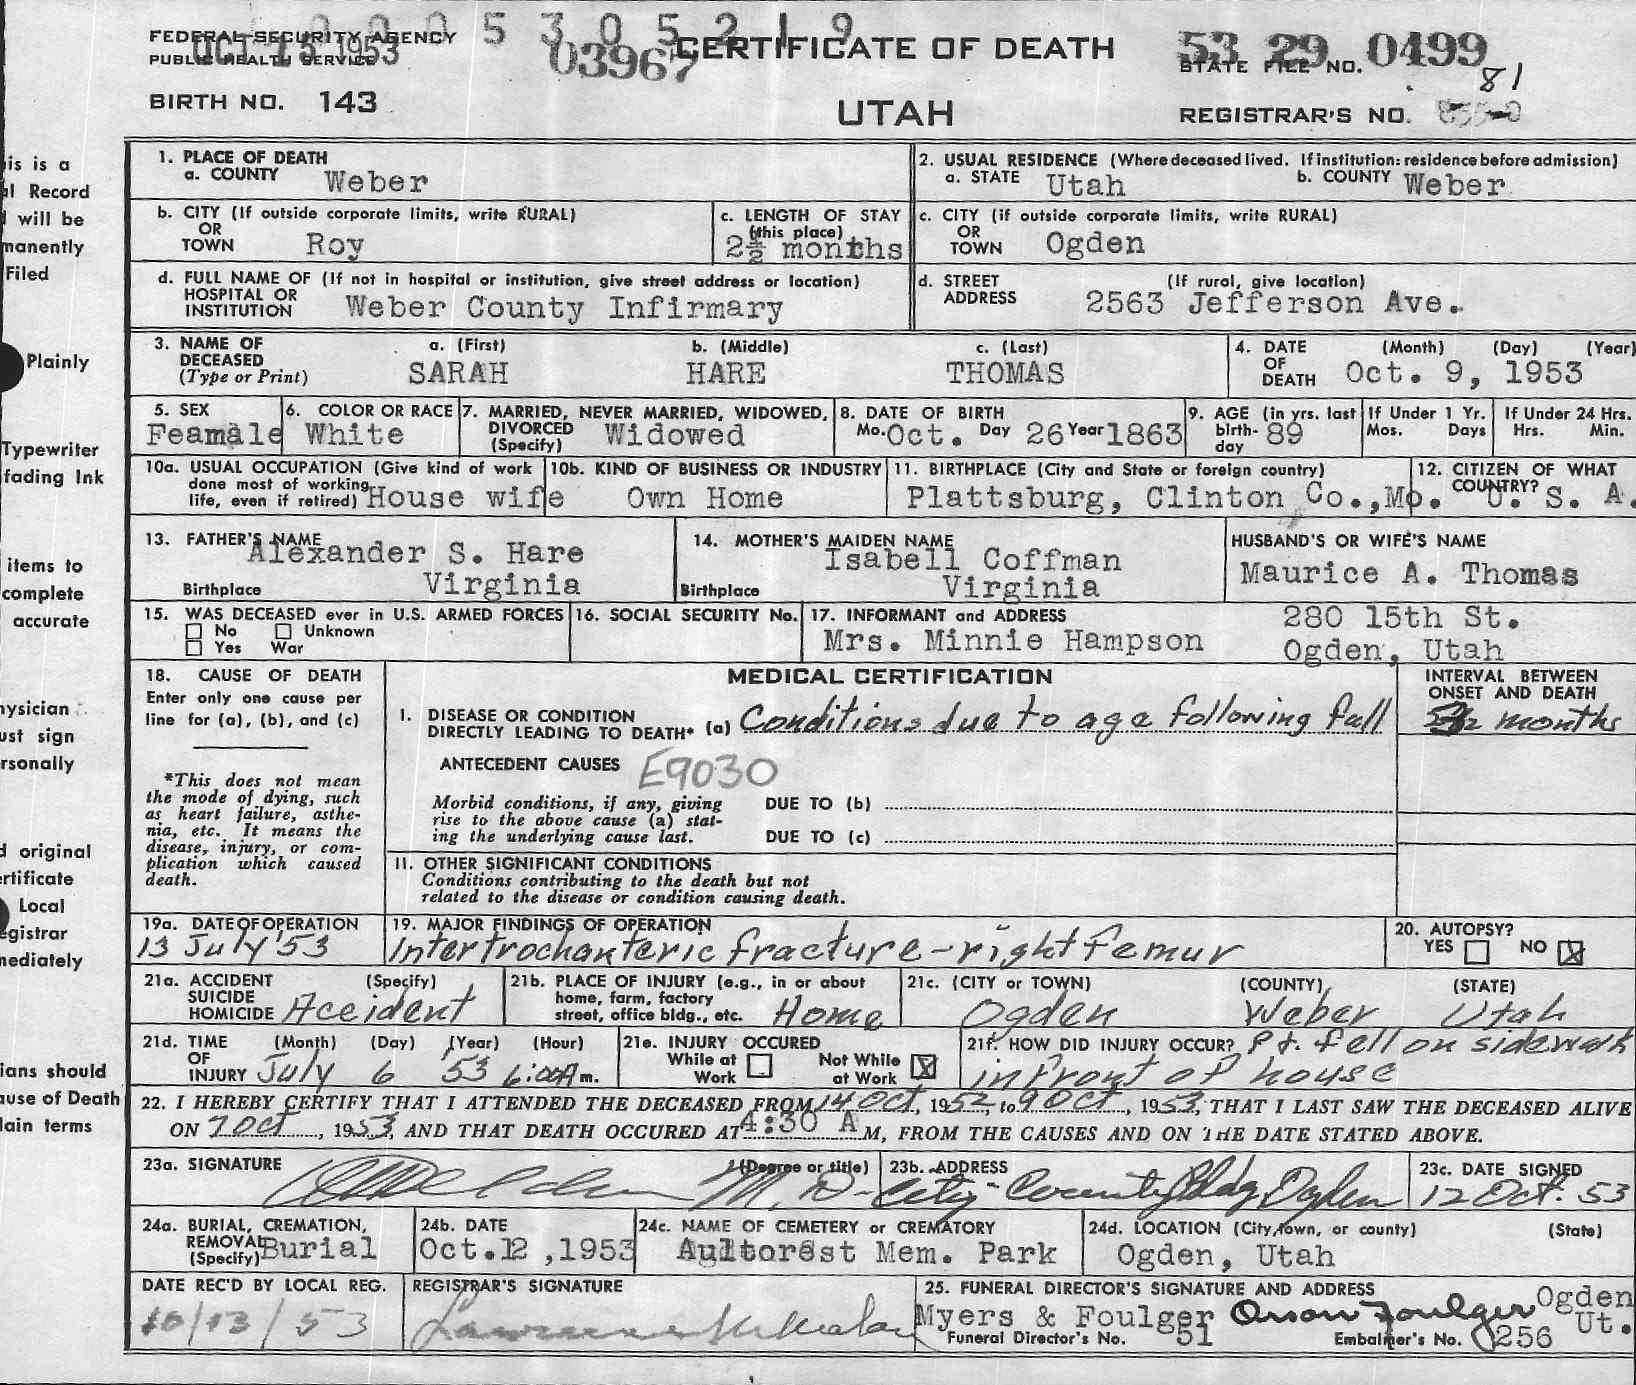 0 0 0 5 3 0 5 2 1 9
FEDERAL SECURITY AGENCY
PUBLIC HEALTH SERVICE
OCT 15 1953
03967
CERTIFICATE OF DEATH
53 29 0499
STATE FILE NO.
81
BIRTH NO. 143
UTAH
REGISTRAR'S NO.
1. PLACE OF DEATH
a. COUNTY Weber
2. USUAL RESIDENCE (Where deceased lived. If institution: residence before admission)
a. STATE Utah b. COUNTY Weber
b. CITY (If outside corporate limits, write RURAL)
OR
TOWN Roy
c. LENGTH OF STAY
(this place)
2½ months
c. CITY (if outside corporate limits, write RURAL)
OR
TOWN Ogden
d. FULL NAME OF (If not in hospital or institution, give street address or location)
HOSPITAL OR
INSTITUTION Weber County Infirmary
d. STREET (If rural, give location)
ADDRESS 2563 Jefferson Ave.
3. NAME OF DECEASED (Type or Print)
a. (First) b. (Middle) c. (Last)
SARAH HARE THOMAS
4. DATE OF DEATH (Month) (Day) (Year)
Oct. 9, 1953
5. SEX
Feamale
6. COLOR OR RACE
White
7. MARRIED, NEVER MARRIED, WIDOWED,
DIVORCED
(Specify) Widowed
8. DATE OF BIRTH
Mo. Oct. Day 26 Year 1863
9. AGE (in yrs. last
birth-
day 89
If Under 1 Yr.
Mos. Days
If Under 24 Hrs.
Hrs. Min.
10a. USUAL OCCUPATION (Give kind of work
done most of working
life, even if retired) House wife
10b. KIND OF BUSINESS OR INDUSTRY
Own Home
11. BIRTHPLACE (City and State or foreign country)
Plattsburg, Clinton Co.,Mo.
12. CITIZEN OF WHAT
COUNTRY? U. S. A.
13. FATHER'S NAME
Alexander S. Hare
Birthplace Virginia
14. MOTHER'S MAIDEN NAME
Isabell Coffman
Birthplace Virginia
HUSBAND'S OR WIFE'S NAME
Maurice A. Thomas
15. WAS DECEASED ever in U.S. ARMED FORCES
No Unknown
Yes War
16. SOCIAL SECURITY No.
17. INFORMANT and ADDRESS
Mrs. Minnie Hampson
280 15th St.
Ogden, Utah
18. CAUSE OF DEATH
Enter only one cause per
line for (a), (b), and (c)
*This does not mean
the mode of dying, such
as heart failure, asthe-
nia, etc. It means the
disease, injury, or com-
plication which caused
death.
MEDICAL CERTIFICATION
INTERVAL BETWEEN
ONSET AND DEATH
I. DISEASE OR CONDITION
DIRECTLY LEADING TO DEATH* (a) Conditions due to age following fall
months
ANTECEDENT CAUSES E9030
Morbid conditions, if any, giving
rise to the above cause (a) stat-
ing the underlying cause last.
DUE TO (b)
DUE TO (c)
II. OTHER SIGNIFICANT CONDITIONS
Conditions contributing to the death but not
related to the disease or condition causing death.
19a. DATE OF OPERATION
13 July '53
19. MAJOR FINDINGS OF OPERATION
Intertrochanteric fracture-right femur
20. AUTOPSY?
YES NO X
21a. ACCIDENT (Specify)
SUICIDE
HOMICIDE Accident
21b. PLACE OF INJURY (e.g., in or about
home, farm, factory
street, office bldg., etc. Home
21c. (CITY or TOWN) (COUNTY) (STATE)
Ogden Weber Utah
21d. TIME (Month) (Day) (Year) (Hour)
OF
INJURY July 6 53 6:00A m.
21e. INJURY OCCURED
While at Work Not While at Work X
21f. HOW DID INJURY OCCUR? Pt. fell on sidewalk
in front of house
22. I HEREBY CERTIFY THAT I ATTENDED THE DECEASED FROM 14 Oct, 1952, to 9 Oct, 1953, THAT I LAST SAW THE DECEASED ALIVE
ON 7 Oct, 1953, AND THAT DEATH OCCURED AT 4:30 A M, FROM THE CAUSES AND ON THE DATE STATED ABOVE.
23a. SIGNATURE (Degree or title)
M.D.
23b. ADDRESS
City-County Bldg, Ogden
23c. DATE SIGNED
12 Oct. 53
24a. BURIAL, CREMATION,
REMOVAL
(Specify) Burial
24b. DATE
Oct.12 ,1953
24c. NAME OF CEMETERY or CREMATORY
Aultorest Mem. Park
24d. LOCATION (City, town, or county) (State)
Ogden, Utah
DATE REC'D BY LOCAL REG.
10/13/53
REGISTRAR'S SIGNATURE
25. FUNERAL DIRECTOR'S SIGNATURE AND ADDRESS
Myers & Foulger Orson Foulger Ogden Ut.
Funeral Director's No. 51 Embalmer's No. 256
is is a
l Record
will be
manently
Filed
Plainly
Typewriter
fading Ink
items to
complete
accurate
hysician
ust sign
rsonally
d original
ertificate
Local
egistrar
mediately
ians should
ause of Death
lain terms